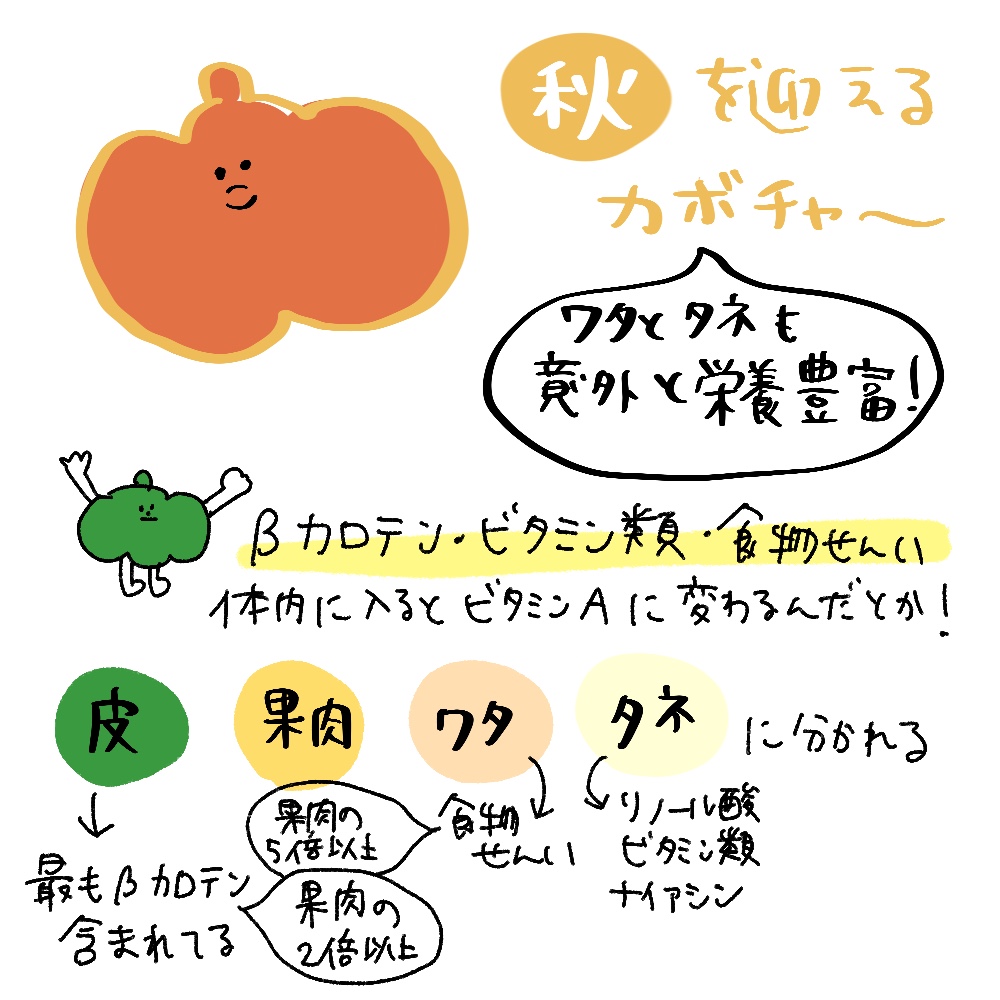 秋を迎える
カボチャ〜
ワタとタネも
意外と栄養豊富!
βカロテン・ビタミン類・食物せんい
体内に入るとビタミンAに変わるんだとか!
皮 果肉 ワタ タネ に分かれる
最もβカロテン
含まれてる
果肉の
2倍以上
果肉の
5倍以上
食物
せんい
リノール酸
ビタミン類
ナイアシン